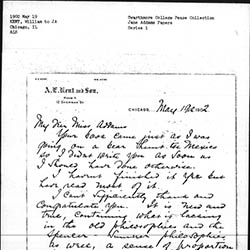 1902 May 19
KENT, William to JA
Chicago, Il
ALS
Swarthmore College Peace Collection
Jane Addams Papers
Series 1
A. E. Kent and Son,
CHICAGO, May 19 1902
My Dear Miss Addams
Your book came just as I was
going on a bear hunt to Mexico
so I didn't write you as soon as
I should have done otherwise.
I haven't finished it yet but
have read most of it.
I cant sufficiently thank and
Congratulate you. It is new and
true, containing what is lacking
in the old philosophies and the
Spencer philosophies
as well, a sense of proportion